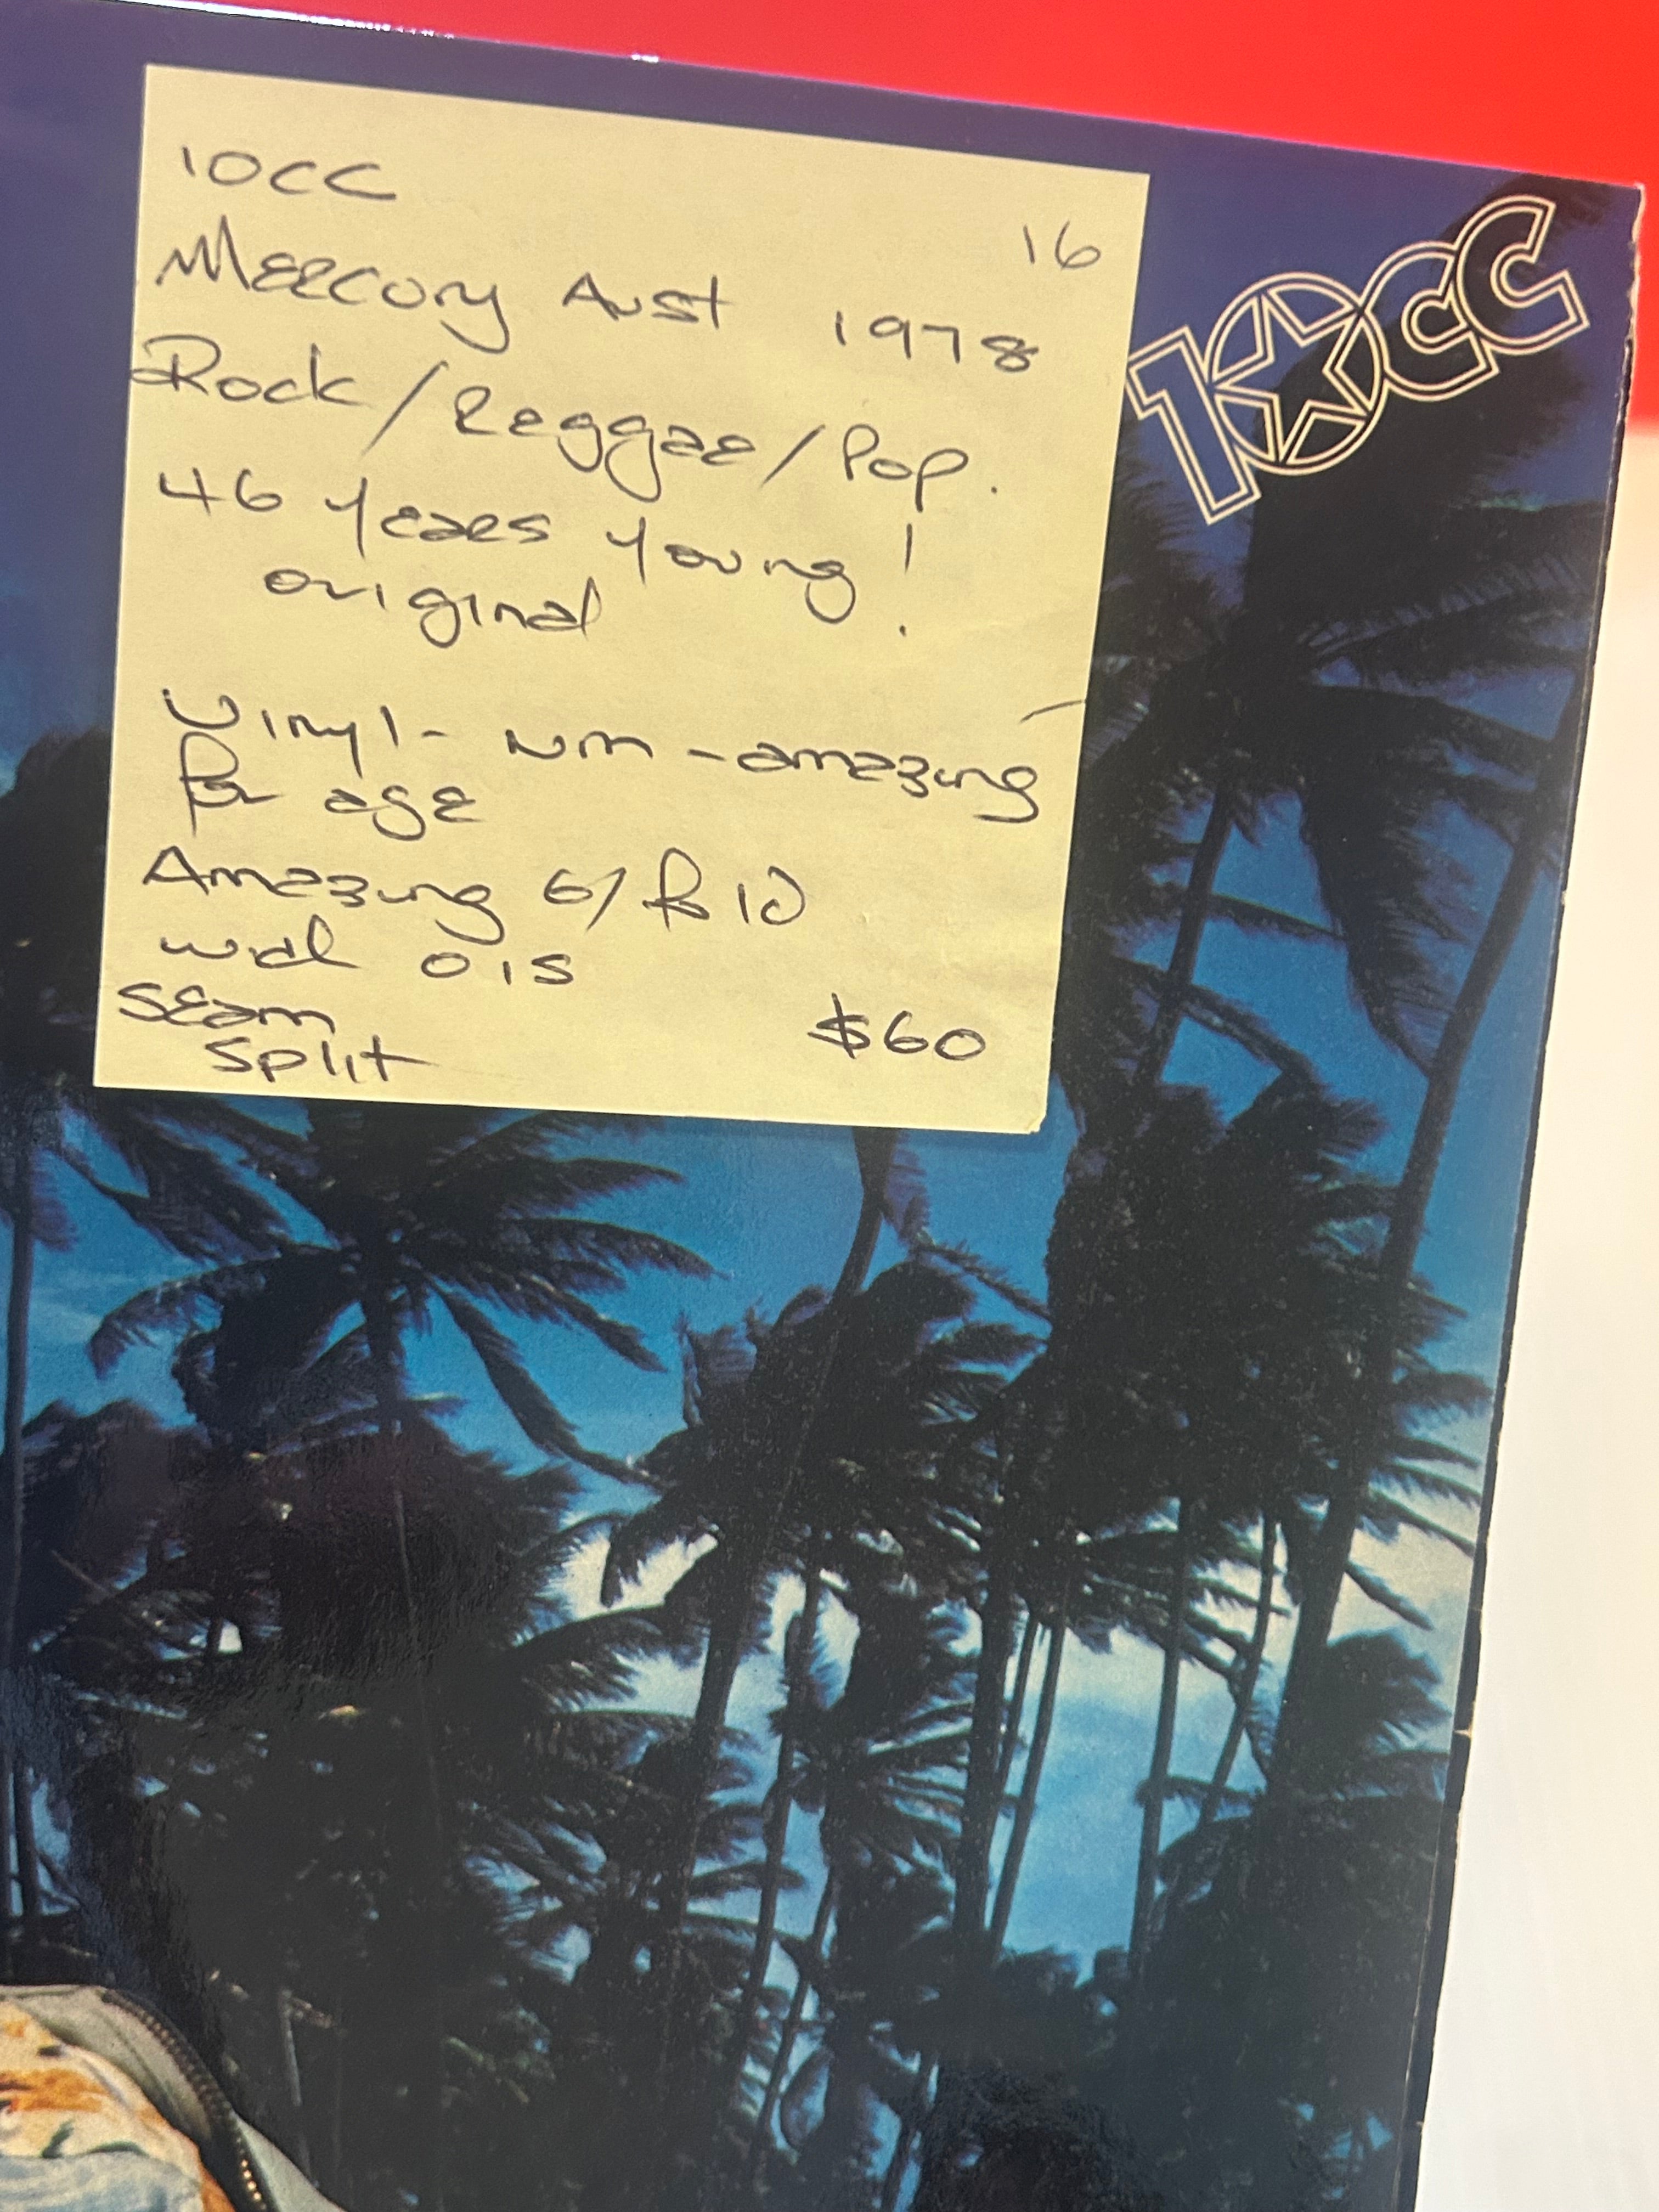 10CC
16
Mercury Aust 1978
Rock/Reggae/Pop.
46 years young!
original
Vinyl - NM - amazing
for age
Amazing G/Fold
with O.I.S
Seam
Split
$60
10cc